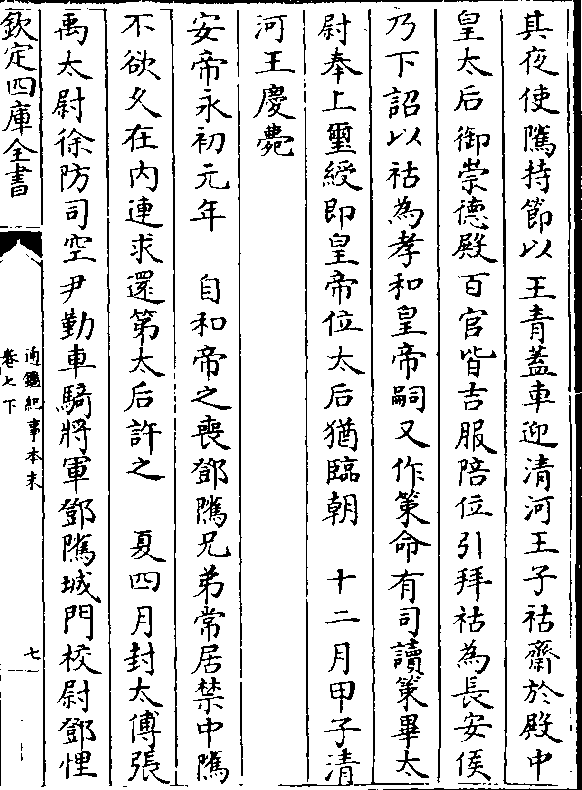 其夜使隲持節以王青蓋車迎清河王子祜齋於殿中
皇太后御崇德殿百官皆吉服陪位引拜祜為長安侯
乃下詔以祜為孝和皇帝嗣又作策命有司讀策畢太
尉奉上璽綬即皇帝位太后猶臨朝　十二月甲子清
河王慶薨
安帝永初元年　自和帝之喪鄧隲兄弟常居禁中隲
不欲久在內連求還第太后許之　夏四月封太傅張
禹太尉徐防司空尹勤車騎將軍鄧隲城門校尉鄧悝
欽定四庫全書
通鑑紀事本末
卷七下
七